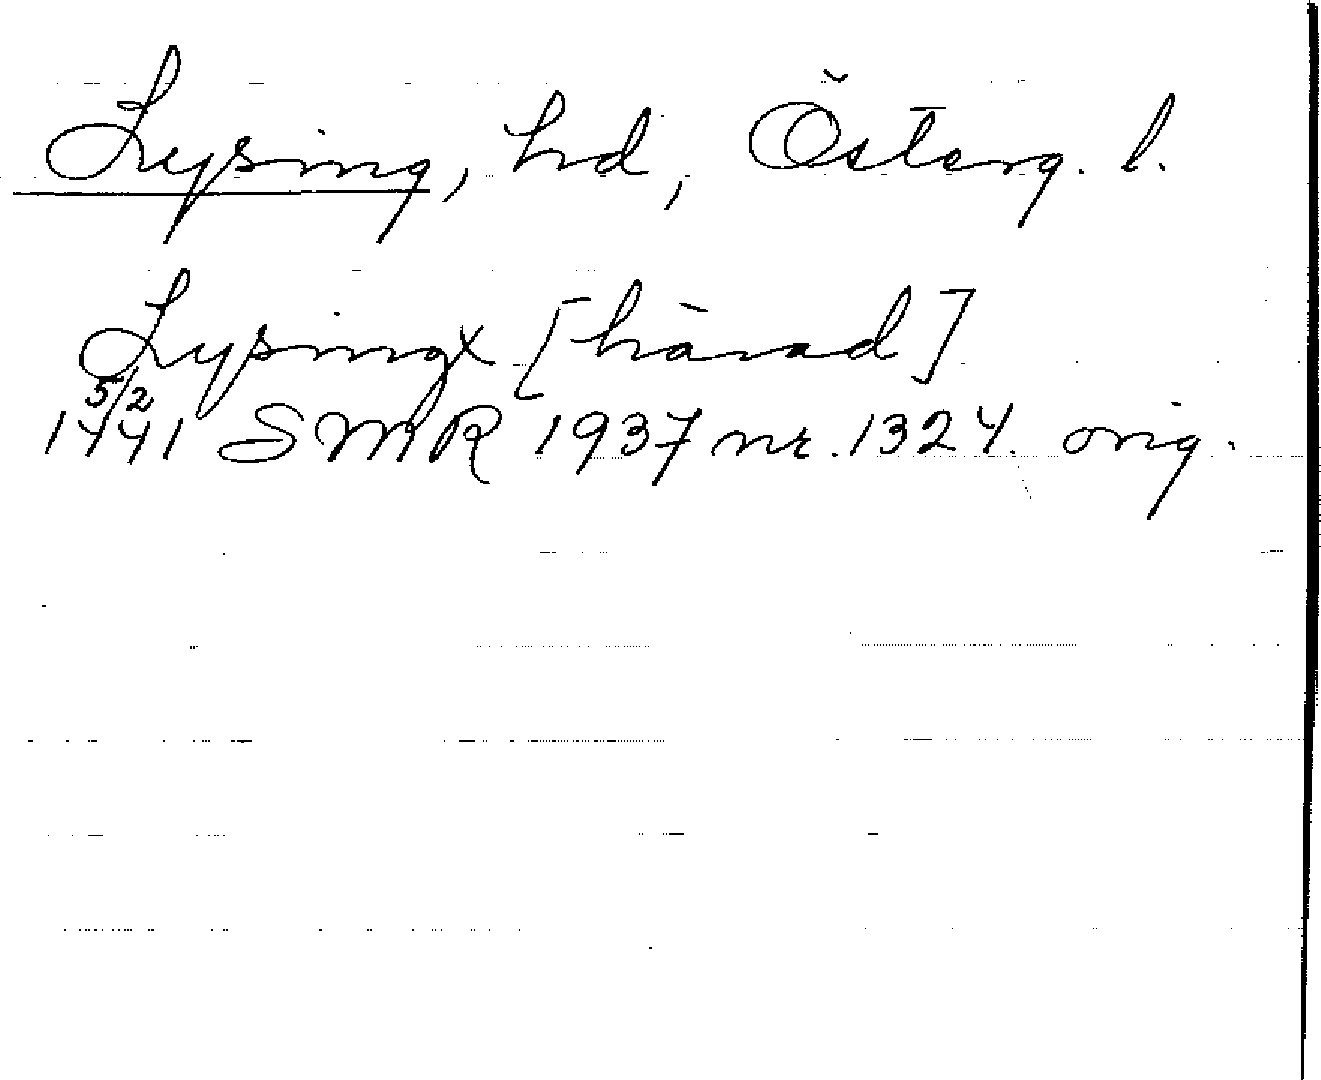 Lysing, hd, Österg. l.
Lysingx [härad]
5/2
1441 SMR 1937 nr. 1324. orig.